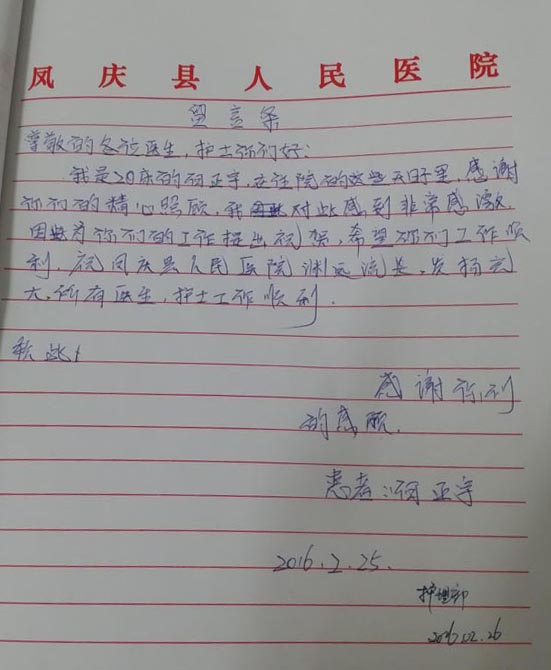 凤庆县人民医院
留言条
尊敬的各位医生,护士你们好:
我是20床的 正宇,在住院的这些天日子里,感谢
你们的精心照顾,我 对此感到非常感激,
因此为你们的工作提出祝贺,希望你们工作顺
利,祝凤庆县人民医院渊远流长,发扬光
大,所有医生,护士工作顺利.
致此!
感谢你们
的感顾.
患者: 正宇
2016.2.25.
护理部
2016.02.26